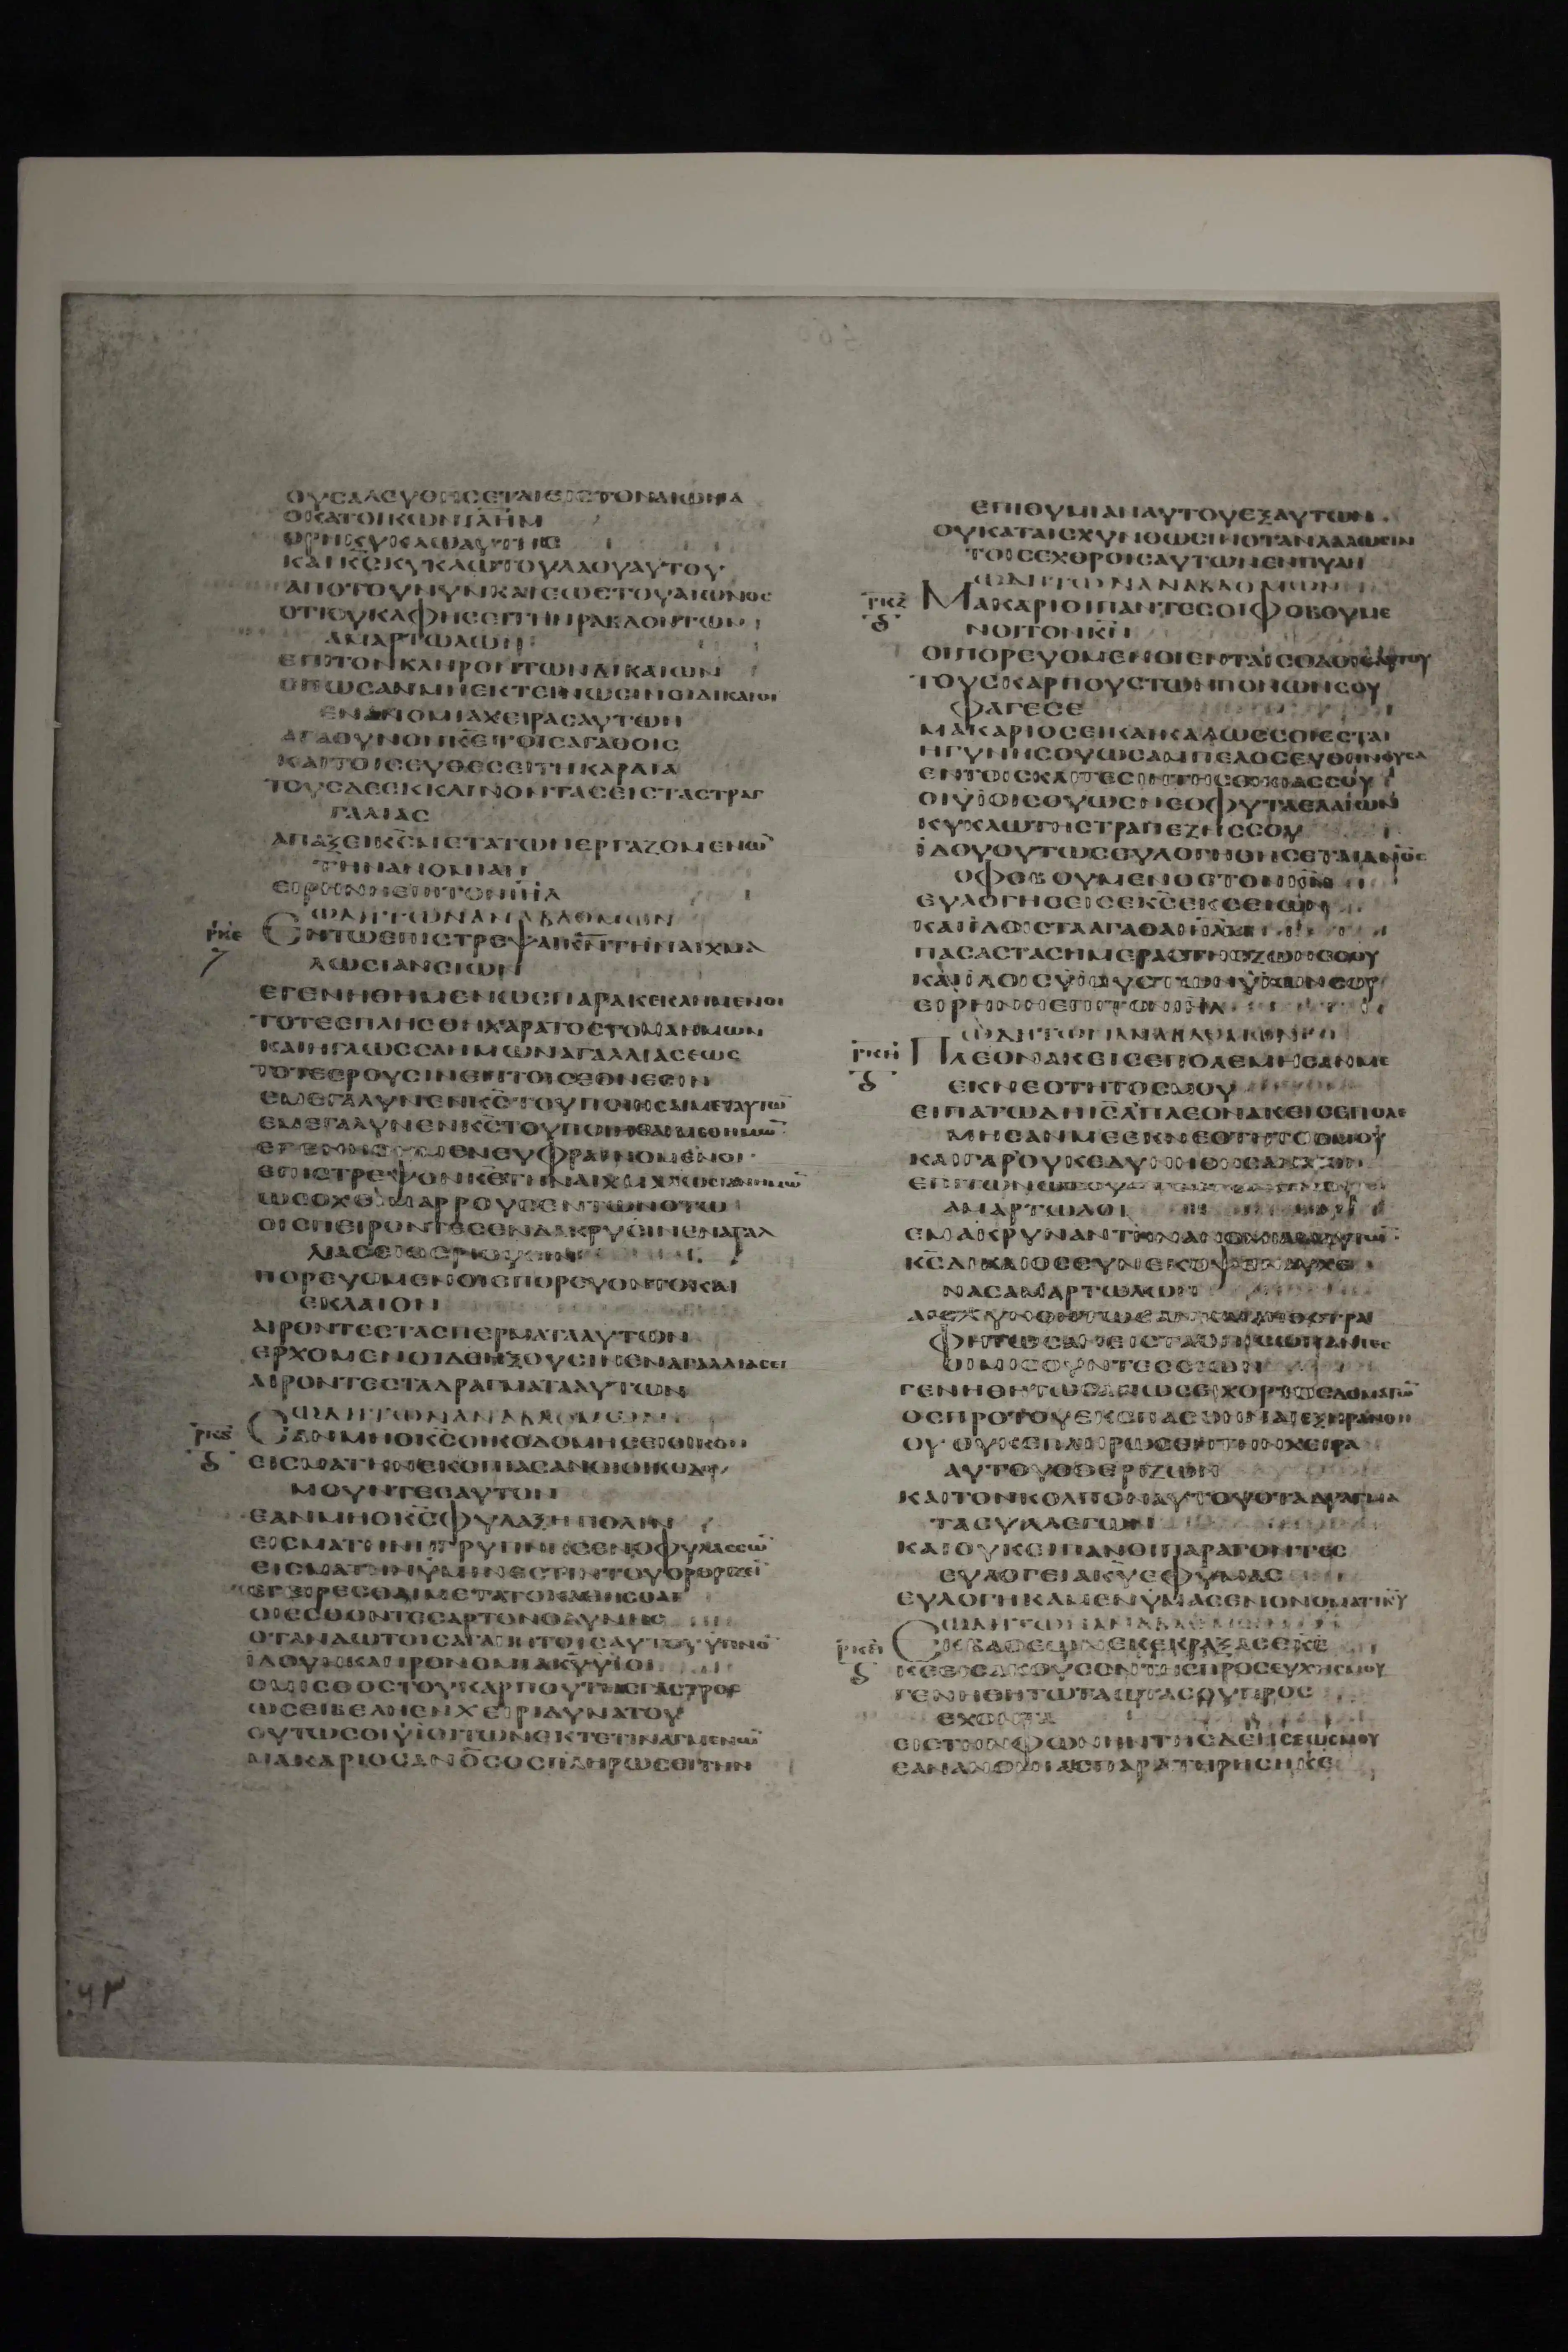 ΟΥΣΑΛΕΥΘΗΣΕΤΑΙΕΙΣΤΟΝΑΙΩΝΑ
ΟΚΑΤΟΙΚΩΝΙΛΗΜ
ΟΡΗΚΥΚΛΩΑΥΤΗΣ
ΚΑΙΚΣΚΥΚΛΩΤΟΥΛΑΟΥΑΥΤΟΥ
ΑΠΟΤΟΥΝΥΝΚΑΙΕΩΣΤΟΥΑΙΩΝΟΣ
ΟΤΙΟΥΚΑΦΗΣΕΙΤΗΝΡΑΒΔΟΝΤΩΝ
ΑΜΑΡΤΩΛΩΝ
ΕΠΙΤΟΝΚΛΗΡΟΝΤΩΝΔΙΚΑΙΩΝ
ΟΠΩΣΑΝΜΗΕΚΤΕΙΝΩΣΙΝΟΙΔΙΚΑΙΟΙ
ΕΝΑΝΟΜΙΑΧΕΙΡΑΣΑΥΤΩΝ
ΑΓΑΘΥΝΟΝΚΕΤΟΙΣΑΓΑΘΟΙΣ
ΚΑΙΤΟΙΣΕΥΘΕΣΕΙΤΗΚΑΡΔΙΑ
ΤΟΥΣΔΕΕΚΚΛΙΝΟΝΤΑΣΕΙΣΤΑΣΤΡΑΓ
ΓΑΛΙΑΣ
ΑΠΑΞΕΙΚΣΜΕΤΑΤΩΝΕΡΓΑΖΟΜΕΝΩ
ΤΗΝΑΝΟΜΙΑΝ
ΕΙΡΗΝΗΕΠΙΤΟΝΙΗΛ
ΩΔΗΤΩΝΑΝΑΒΑΘΜΩΝ
ΡΚΕ ΕΝΤΩΕΠΙΣΤΡΕΨΑΙΚΝΤΗΝΑΙΧΜΑ
ΛΩΣΙΑΝΣΙΩΝ
ΕΓΕΝΗΘΗΜΕΝΩΣΠΑΡΑΚΕΚΛΗΜΕΝΟΙ
ΤΟΤΕΕΠΛΗΣΘΗΧΑΡΑΤΟΣΤΟΜΑΗΜΩΝ
ΚΑΙΗΓΛΩΣΣΑΗΜΩΝΑΓΑΛΛΙΑΣΕΩΣ
ΤΟΤΕΕΡΟΥΣΙΝΕΝΤΟΙΣΕΘΝΕΣΙΝ
ΕΜΕΓΑΛΥΝΕΝΚΣΤΟΥΠΟΙΗΣΑΙΜΕΤΑΥΤΩ
ΕΜΕΓΑΛΥΝΕΝΚΣΤΟΥΠΟΙΗΣΑΙΜΕΘΗΜΩ
ΕΓΕΝΗΘΗΜΕΝΕΥΦΡΑΙΝΟΜΕΝΟΙ
ΕΠΙΣΤΡΕΨΟΝΚΕΤΗΝΑΙΧΜΑΛΩΣΙΑΝΗΜΩ
ΩΣΟΧΙΜΑΡΡΟΥΣΕΝΤΩΝΟΤΩ
ΟΙΣΠΕΙΡΟΝΤΕΣΕΝΔΑΚΡΥΣΙΝΕΝΑΓΑΛ
ΛΙΑΣΕΙΘΕΡΙΟΥΣΙΝ
ΠΟΡΕΥΟΜΕΝΟΙΕΠΟΡΕΥΟΝΤΟΚΑΙ
ΕΚΛΑΙΟΝ
ΑΙΡΟΝΤΕΣΤΑΣΠΕΡΜΑΤΑΑΥΤΩΝ
ΕΡΧΟΜΕΝΟΙΔΕΗΞΟΥΣΙΝΕΝΑΓΑΛΛΙΑΣΕΙ
ΑΙΡΟΝΤΕΣΤΑΔΡΑΓΜΑΤΑΑΥΤΩΝ
ΩΔΗΤΩΝΑΝΑΒΑΘΜΩΝ
ΡΚϚ ΕΑΝΜΗΟΚΣΟΙΚΟΔΟΜΗΣΕΙΟΙΚΟΝ
ΕΙΣΜΑΤΗΝΕΚΟΠΙΑΣΑΝΟΙΟΙΚΟΔΟ
ΜΟΥΝΤΕΣΑΥΤΟΝ
ΕΑΝΜΗΟΚΣΦΥΛΑΞΗΠΟΛΙΝ
ΕΙΣΜΑΤΗΝΗΓΡΥΠΝΗΣΕΝΟΦΥΛΑΣΣΩ
ΕΙΣΜΑΤΗΝΥΜΙΝΕΣΤΙΝΤΟΥΟΡΘΡΙΖΕΙ
ΕΓΕΙΡΕΣΘΑΙΜΕΤΑΤΟΚΑΘΗΣΘΑΙ
ΟΙΕΣΘΟΝΤΕΣΑΡΤΟΝΟΔΥΝΗΣ
ΟΤΑΝΔΩΤΟΙΣΑΓΑΠΗΤΟΙΣΑΥΤΟΥΥΠΝΟ
ΙΔΟΥΗΚΛΗΡΟΝΟΜΙΑΚΥΥΙΟΙ
ΟΜΙΣΘΟΣΤΟΥΚΑΡΠΟΥΤΗΣΓΑΣΤΡΟΣ
ΩΣΕΙΒΕΛΗΕΝΧΕΙΡΙΔΥΝΑΤΟΥ
ΟΥΤΩΣΟΙΥΙΟΙΤΩΝΕΚΤΕΤΙΝΑΓΜΕΝΩ
ΜΑΚΑΡΙΟΣΑΝΟΣΟΣΠΛΗΡΩΣΕΙΤΗΝ
ΕΠΙΘΥΜΙΑΝΑΥΤΟΥΕΞΑΥΤΩΝ
ΟΥΚΑΤΑΙΣΧΥΝΘΩΣΙΝΟΤΑΝΛΑΛΩΣΙΝ
ΤΟΙΣΕΧΘΡΟΙΣΑΥΤΩΝΕΝΠΥΛΗ
ΩΔΗΤΩΝΑΝΑΒΑΘΜΩΝ
ΡΚΖ ΜΑΚΑΡΙΟΙΠΑΝΤΕΣΟΙΦΟΒΟΥΜΕ
ΝΟΙΤΟΝΚΝ
ΟΙΠΟΡΕΥΟΜΕΝΟΙΕΝΤΑΙΣΟΔΟΙΣΑΥΤΟΥ
ΤΟΥΣΚΑΡΠΟΥΣΤΩΝΠΟΝΩΝΣΟΥ
ΦΑΓΕΣΕ
ΜΑΚΑΡΙΟΣΕΙΚΑΙΚΑΛΩΣΣΟΙΕΣΤΑΙ
ΗΓΥΝΗΣΟΥΩΣΑΜΠΕΛΟΣΕΥΘΗΝΟΥΣΑ
ΕΝΤΟΙΣΚΛΙΤΕΣΙΝΤΗΣΟΙΚΙΑΣΣΟΥ
ΟΙΥΙΟΙΣΟΥΩΣΝΕΟΦΥΤΑΕΛΑΙΩΝ
ΚΥΚΛΩΤΗΣΤΡΑΠΕΖΗΣΣΟΥ
ΙΔΟΥΟΥΤΩΣΕΥΛΟΓΗΘΗΣΕΤΑΙΑΝΟΣ
ΟΦΟΒΟΥΜΕΝΟΣΤΟΝΚΝ
ΕΥΛΟΓΗΣΕΙΣΕΚΣΕΚΣΕΙΩΝ
ΚΑΙΙΔΟΙΣΤΑΑΓΑΘΑΙΛΗΜ
ΠΑΣΑΣΤΑΣΗΜΕΡΑΣΤΗΣΖΩΗΣΣΟΥ
ΚΑΙΙΔΟΙΣΥΙΟΥΣΤΩΝΥΙΩΝΣΟΥ
ΕΙΡΗΝΗΕΠΙΤΟΝΙΗΛ
ΩΔΗΤΩΝΑΝΑΒΑΘΜΩΝ
ΡΚΗ ΠΛΕΟΝΑΚΕΙΣΕΠΟΛΕΜΗΣΑΝΜΕ
ΕΚΝΕΟΤΗΤΟΣΜΟΥ
ΕΙΠΑΤΩΔΗΙΣΛΠΛΕΟΝΑΚΕΙΣΕΠΟΛΕ
ΜΗΣΑΝΜΕΕΚΝΕΟΤΗΤΟΣΜΟΥ
ΚΑΙΓΑΡΟΥΚΕΔΥΝΗΘΗΣΑΝΜΟΙ
ΑΜΑΡΤΩΛΟΙ
ΕΜΑΚΡΥΝΑΝΤΗΝΑΝΟΜΙΑΝΑΥΤΩ
ΚΣΔΙΚΑΙΟΣΣΥΝΕΚΟΨΕΝΑΥΧΕ
ΝΑΣΑΜΑΡΤΩΛΩΝ
ΑΙΣΧΥΝΘΗΤΩΣΑΝΚΑΙΑΠΟΣΤΡΑ
ΦΗΤΩΣΑΝΕΙΣΤΑΟΠΙΣΩΠΑΝΤΕΣ
ΟΙΜΙΣΟΥΝΤΕΣΣΙΩΝ
ΓΕΝΗΘΗΤΩΣΑΝΩΣΕΙΧΟΡΤΟΣΔΩΜΑΤΩ
ΟΣΠΡΟΤΟΥΕΚΣΠΑΣΘΗΝΑΙΕΞΗΡΑΝΘΗ
ΟΥΟΥΚΕΠΛΗΡΩΣΕΝΤΗΝΧΕΙΡΑ
ΑΥΤΟΥΟΘΕΡΙΖΩΝ
ΚΑΙΤΟΝΚΟΛΠΟΝΑΥΤΟΥΟΤΑΔΡΑΓΜΑ
ΤΑΣΥΛΛΕΓΩΝ
ΚΑΙΟΥΚΕΙΠΑΝΟΙΠΑΡΑΓΟΝΤΕΣ
ΕΥΛΟΓΕΙΑΚΥΕΦΥΜΑΣ
ΕΥΛΟΓΗΚΑΜΕΝΥΜΑΣΕΝΟΝΟΜΑΤΙΚΥ
ΩΔΗΤΩΝΑΝΑΒΑΘΜΩΝ
ΡΚΘ ΕΚΒΑΘΕΩΝΕΚΕΚΡΑΞΑΣΕΚΕ
ΚΕΕΙΣΑΚΟΥΣΟΝΤΗΣΠΡΟΣΕΥΧΗΣΜΟΥ
ΓΕΝΗΘΗΤΩΤΑΩΤΑΣΟΥΠΡΟΣ
ΕΧΟΝΤΑ
ΕΙΣΤΗΝΦΩΝΗΝΤΗΣΔΕΗΣΕΩΣΜΟΥ
ΕΑΝΑΝΟΜΙΑΣΠΑΡΑΤΗΡΗΣΗΚΕ